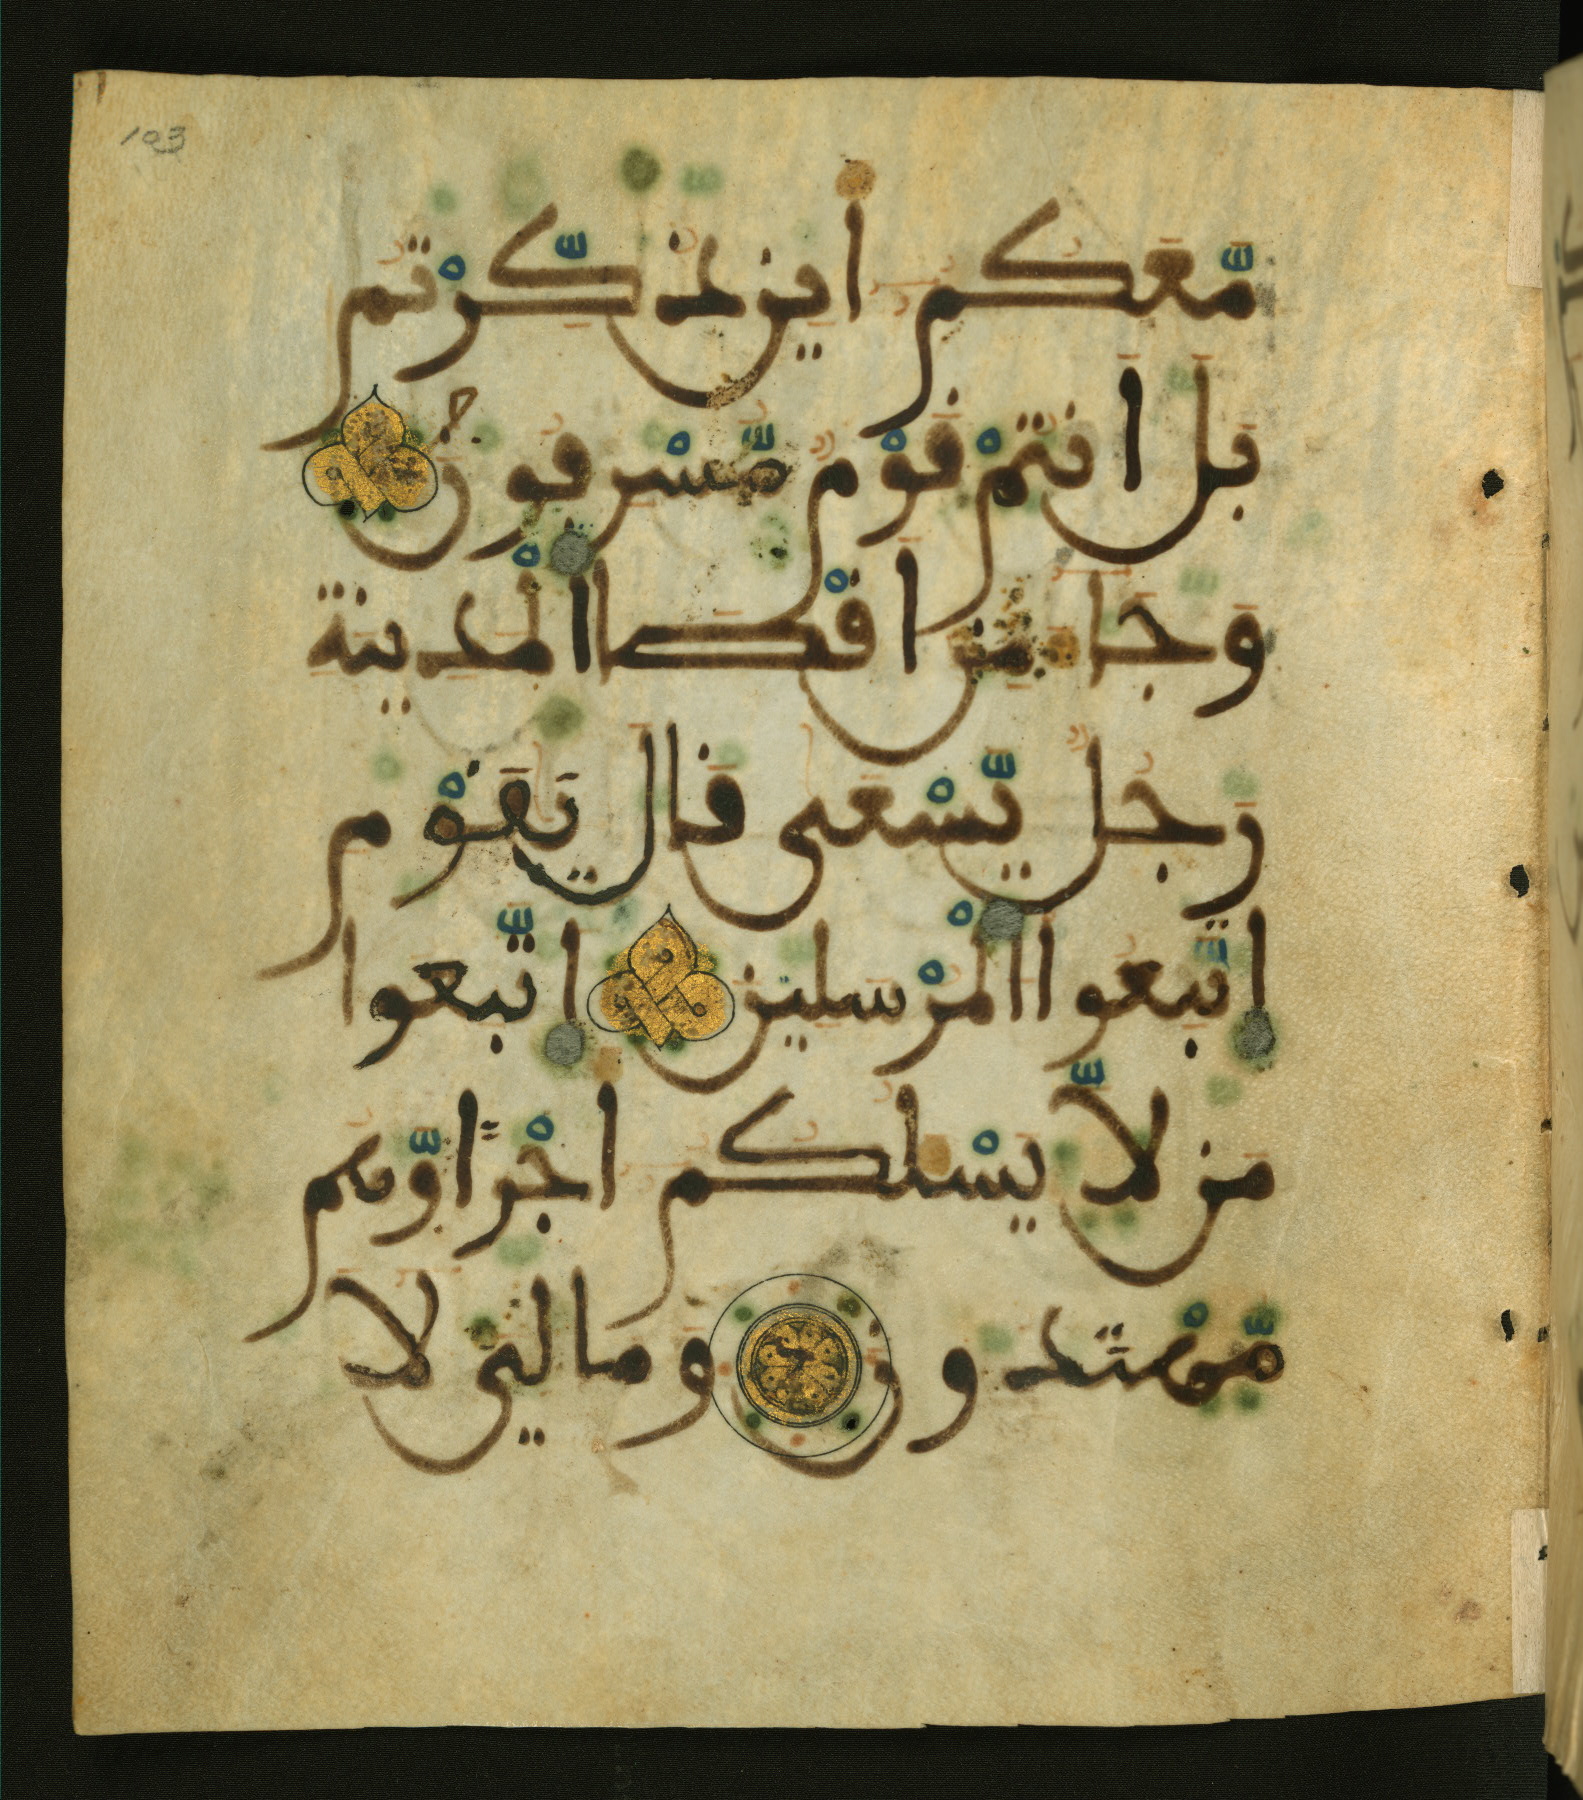 103
مَّعَكُمُۥٓ أَيِن ذُكِّرْتُم
بَلَ اَنتُمْ قَوْمٌ مُّسْرِفُونَ
وَجَآءَ مِنَ اَقْصَا اَ۬لْمَدِينَةِ
رَجُلٌ يَّسْعَىٰ قَالَ يَٰقَوْمِ
اِ۪تَّبِعُوا اُ۬لْمُرْسَلِينَ اَ۪تَّبِعُوا
مَن لَّا يَسْـَٔلُكُمُۥٓ أَجْرًا وَّهُم
مُّهْتَدُونَ وَمَا لِيَ لَآ